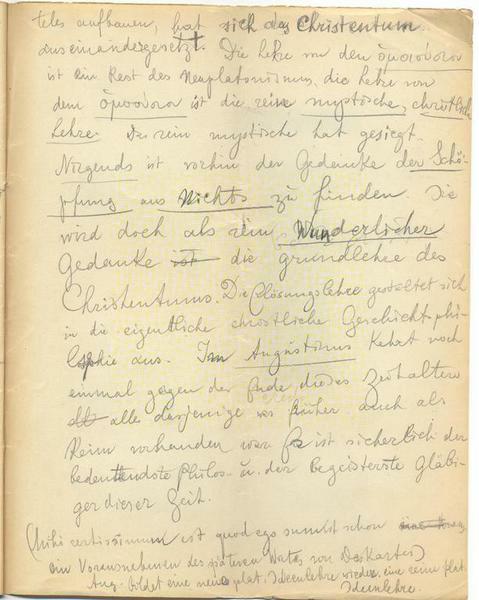 teles aufbauen, hat sich das Christentum
auseinandergesetzt. Die Lehre von den ὁμοιούσιον
ist ein Rest des Neuplatonismus, die Lehre von
dem ὁμοούσιον ist die reine mystische, christliche
Lehre. Das rein mystische hat gesiegt.
Nirgends ist vorhin der Gedanke der Schö-
pfung aus Nichts zu finden. Sie
wird doch als rein Wunderlicher
Gedanke ist die grundlehre des
Christentums. Die Erlösungslehre gestaltet sich
in die eigentliche christliche Geschichtsphi-
losophie aus. Im Augustinus kehrt noch
einmal gegen der Ende dieses Zeitalters
alle dasjenige was früher auch als
Keim vorhanden war. Es ist sicherlich der
bedeutendste Philos. u. der begeisterte Gläbi-
ger dieser Zeit.
(Mihi certissimum est quod ego sum ist schon
ein Vorausnehmen des späteren Wortes von Deskartes)
Aug. bildet eine neue plat. Ideenlehre wieder, eine reine plat.
Ideenlehre.